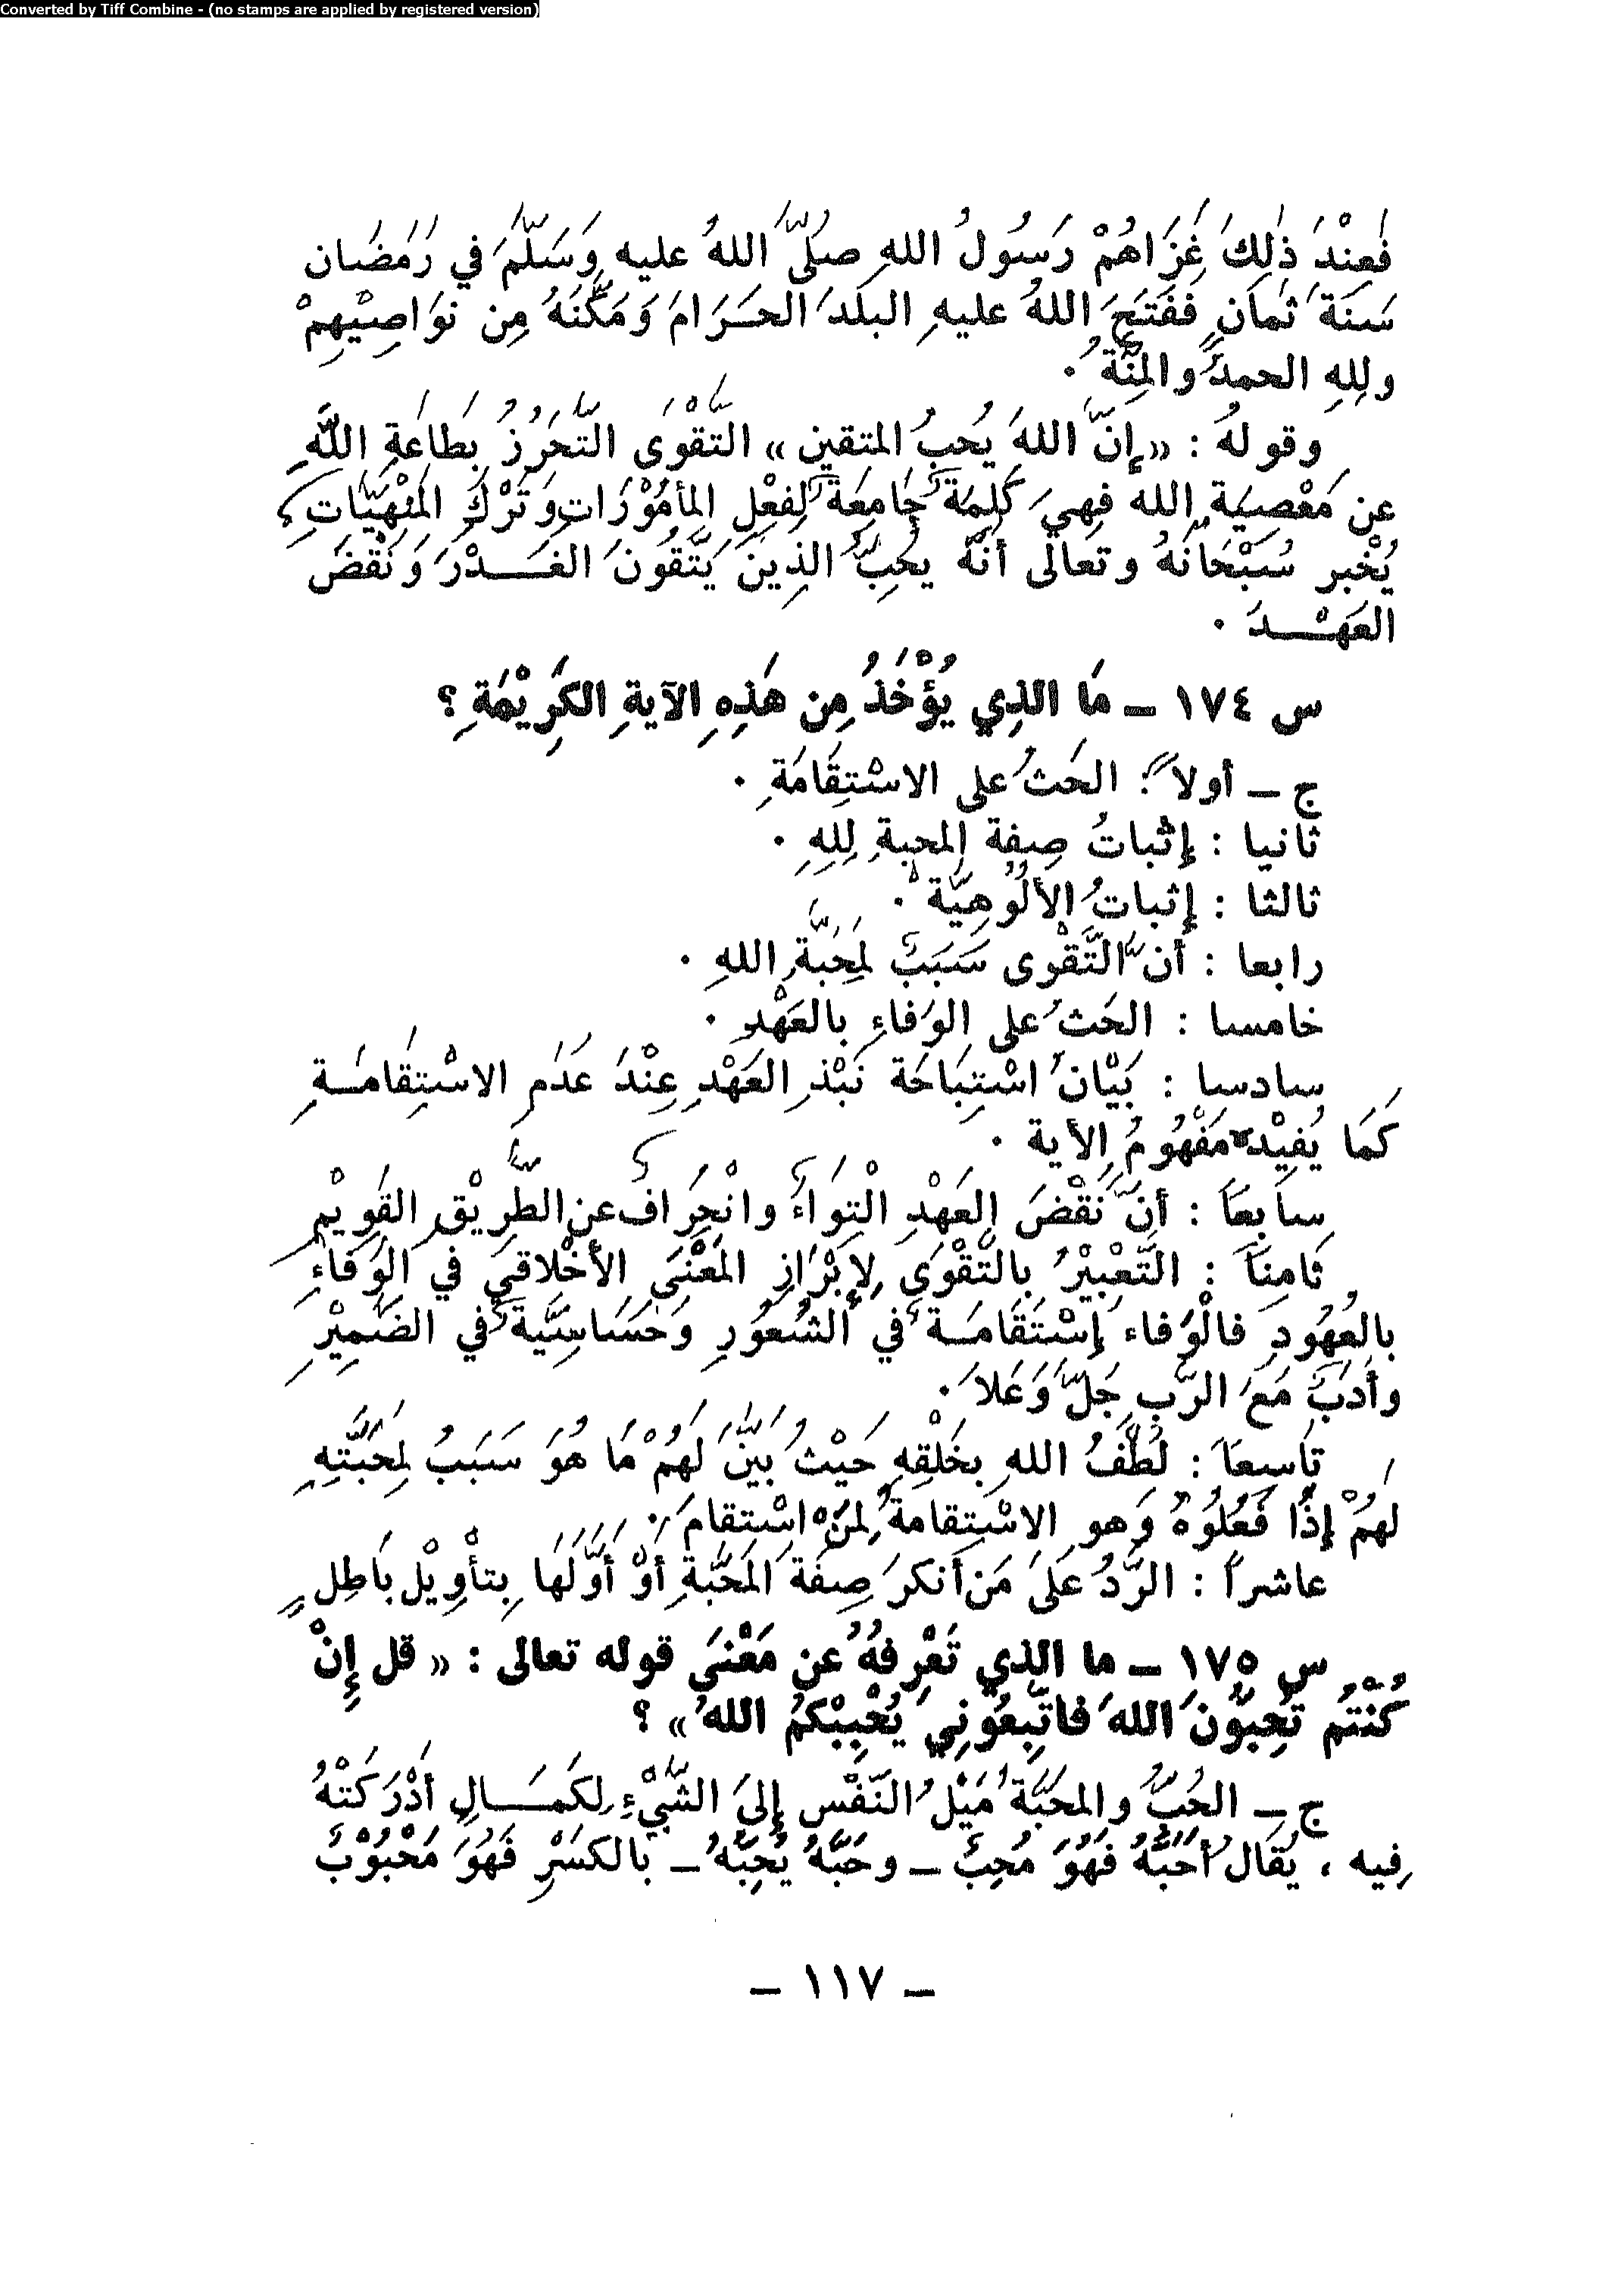 Converted by Tiff Combine - (no stamps are applied by registered version)
فَعِنْدَ ذٰلِكَ غَزَاهُمْ رَسُولُ اللهِ صلّى اللهُ عليه وَسَلَّمَ في رَمَضَان
سَنَةَ ثَمانٍ فَفَتَحَ اللهُ عليهِ البلَدَ الحَرَامَ وَمَكَّنَهُ مِن نَوَاصِيْهِمْ
ولِلهِ الحمدُ والمِنَّةُ .
وقولهُ : « إنّ اللهَ يُحبُ المتقين » التَّقْوَى التَّحَرُزُ بِطاعَةِ اللهِ
عن مَعْصِيَةِ اللهِ فهِيَ كَلِمَةٌ جَامِعَةٌ لِفِعْلِ المأمُوْرَاتِ وَتَرْكِ المَنْهِيَّاتِ
يُخْبِر سُبْحَانَهُ وتعالَى أنَّهُ يحِبُّ الذِينَ يَتَّقُونَ الغَدْرَ وَنَقْضَ
العَهْدَ .
س ١٧٤ – مَا الذِي يُؤْخَذُ مِن هَذِهِ الآيةِ الكَرِيْمَةِ ؟
ج – أولاً : الحَثُ على الاسْتِقَامَةِ .
ثانيا : إثْباتُ صِفةِ المحبةِ لِلهِ .
ثالثا : إثباتُ الألُوهِيَّةِ .
رابعا : أنّ التَّقْوى سَبَبٌ لِمَحَبَّةِ اللهِ .
خامسا : الحَثُ على الوَفاءِ بالعَهْدِ .
سادسا : بَيْانُ اسْتِبَاحَة نَبْذِ العَهْدِ عِنْدَ عَدَمِ الاسْتِقامَةِ
كَمَا يُفِيْدُ مَفْهُومُ الأية .
سابِعَاً : أنّ نَقْضَ العَهْدِ الْتِوَاءٌ وانْحِرَافٌ عن الطَّرِيْقِ القَوِيْمِ
ثامِنَاً : التَّعْبِيْرُ بالتَّقْوَى لِإبْرَازِ المَعْنَى الأخْلاقِي في الوَفاءِ
بالعُهُودِ فالْوَفاء إسْتَقَامَةٌ في الشُعُورِ وَحَسَاسِيَّةٌ في الضَمِيْرِ
وأدَبٌ مَعَ الرَّبِ جَلَّ وَعَلاَ .
تاسِعَاً : لُطْفُ اللهِ بخَلْقِهِ حَيْثُ بَيَّنَ لَهُمْ مَا هُوَ سَبَبُ لِمَحَبَّتِهِ
لَهُمْ إذَا فَعَلُوهُ وَهو الاسْتِقامةُ لِمَنْ اسْتِقامَ .
عاشراً : الرَّدُ عَلَى مَن أنكرَ صِفَةَ المَحَبَّةِ أَوْ أَوَّلَهَا بِتأوِيْل بَاطِلٍ
س ١٧٥ – ما الذِي تَعْرِفُهُ عن مَعْنَى قوله تعالى : « قل إِنْ
كُنْتُم تُحِبُّونَ اللهَ فاتَّبِعُونِي يُحْبِبْكمُ اللهُ » ؟
ج – الحُبُّ والمحَبَّةُ مَيْلُ النَّفْس إلىَ الشَّيْءِ لِكَمَالِ أدْرَكَتْهُ
فِيه ، يُقَالُ أحَبَّهُ فَهُوَ مُحِبٌ – وحَبَّهُ يُحِبُّهُ – بالكسْرِ فَهُوَ مَحْبُوْبٌ
– ١١٧ –